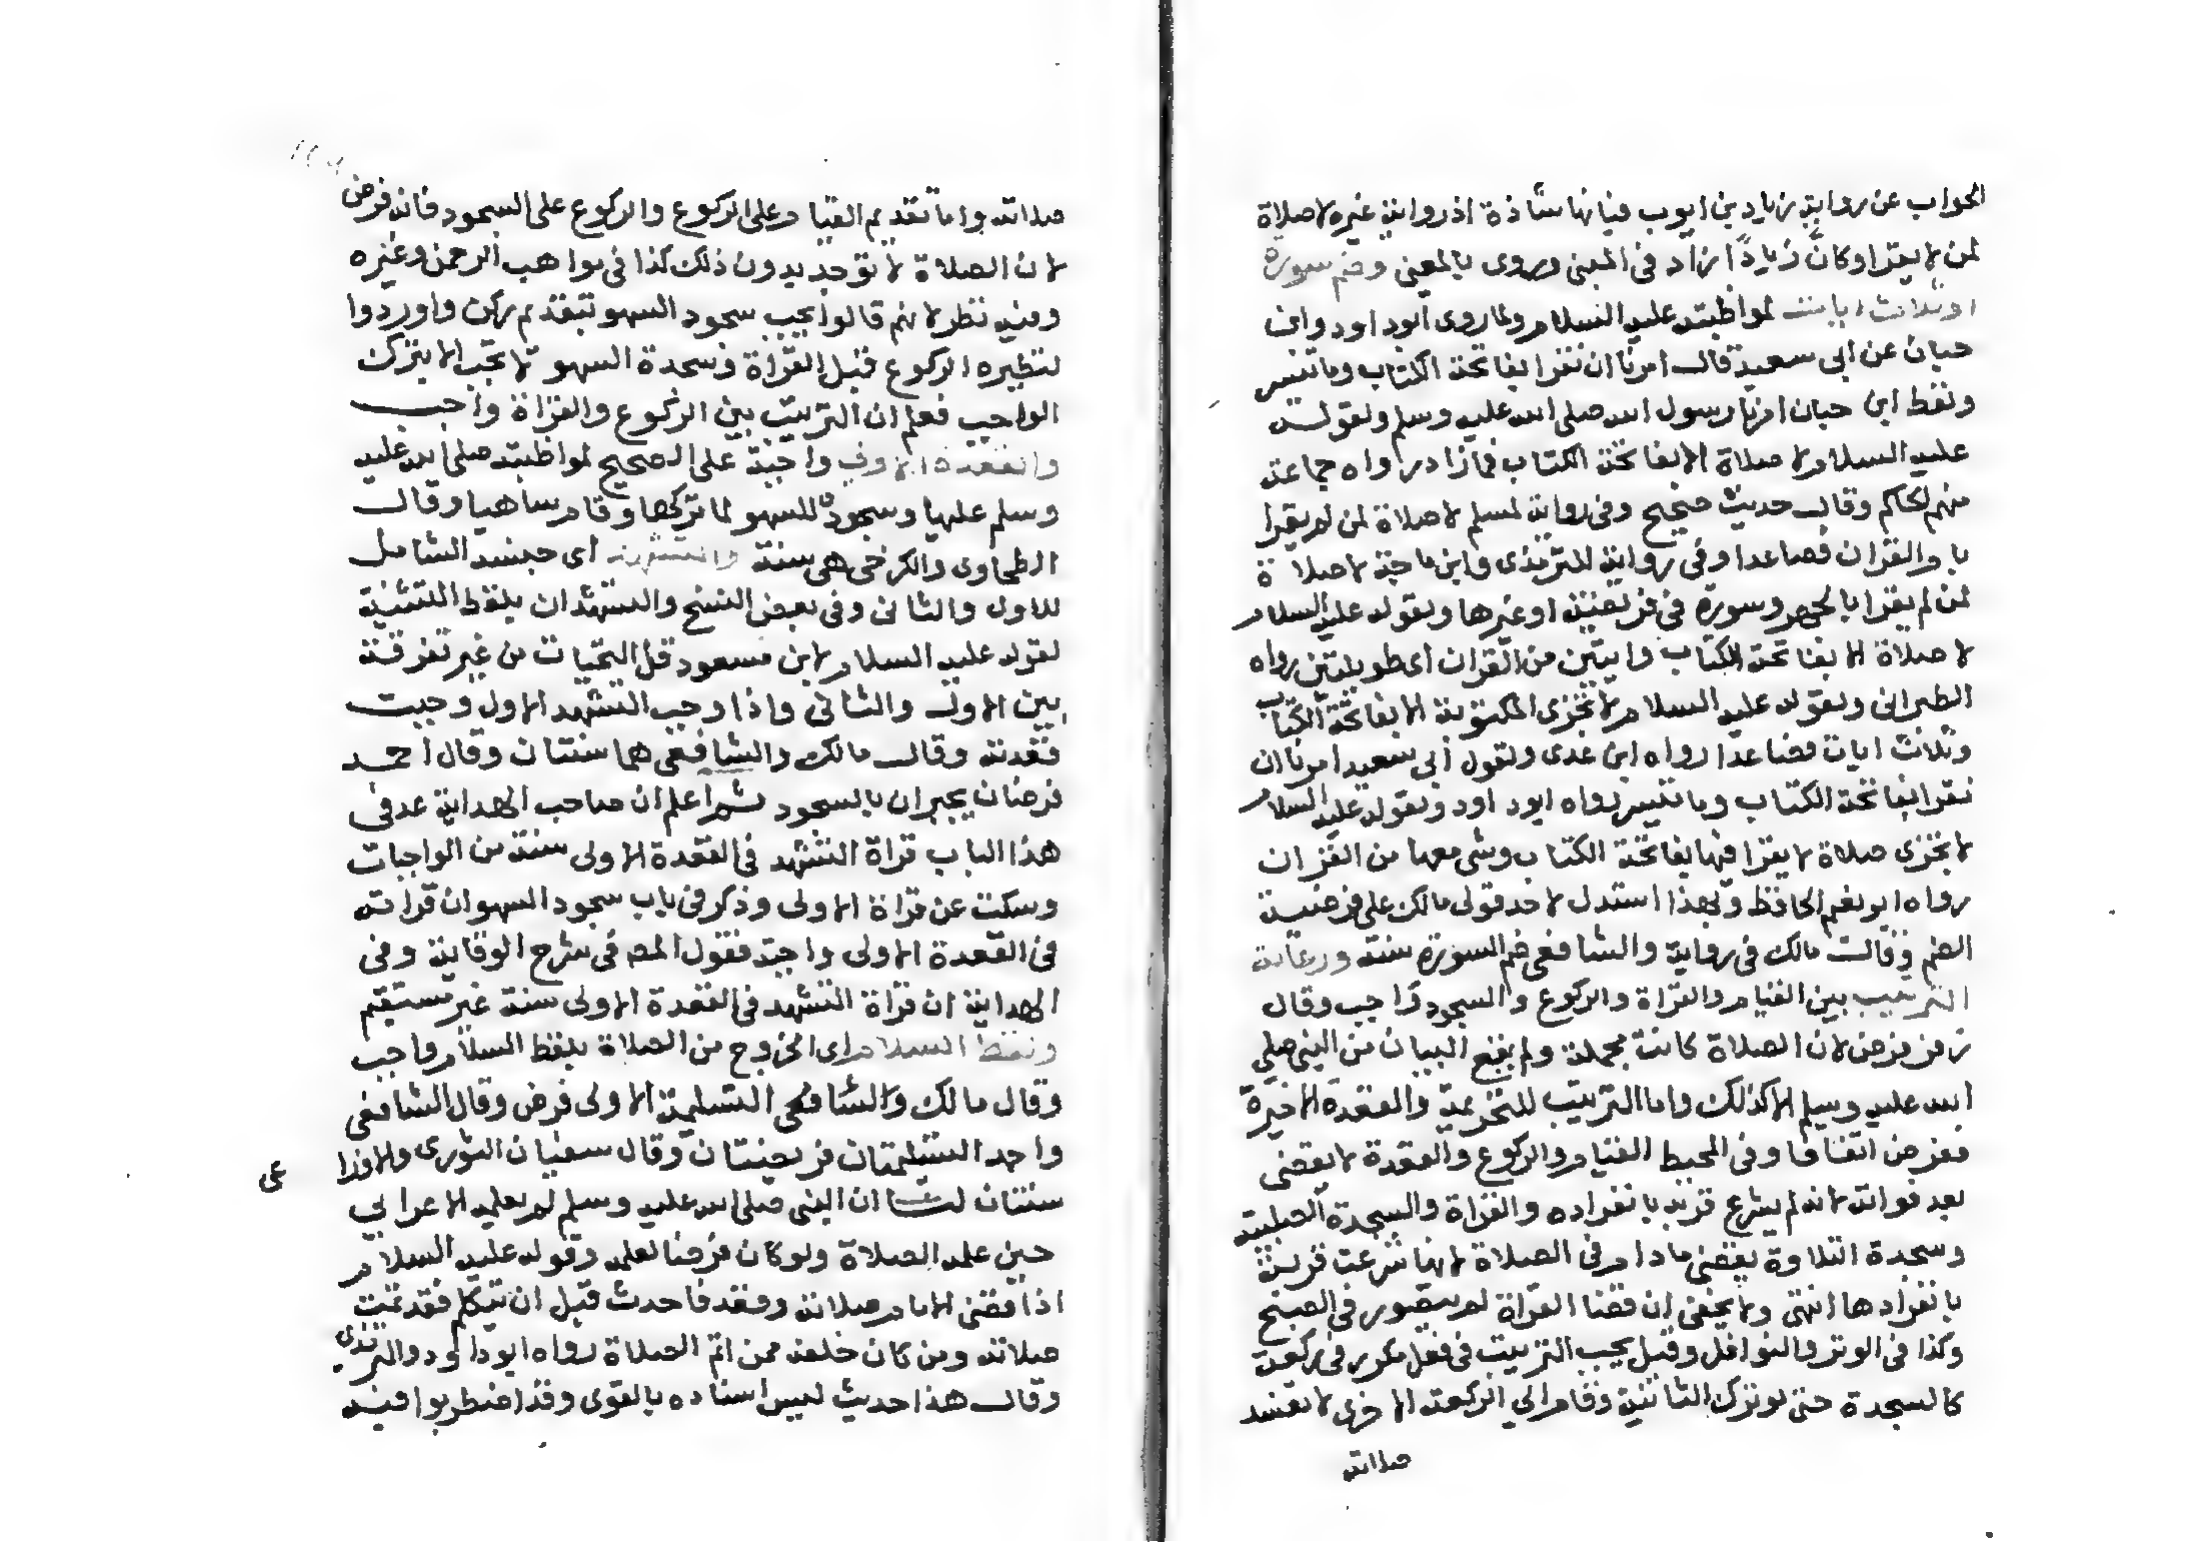 الجواب عن رواية زياد بن ايوب فبانها شاذة اذ رواية غيره لا صلاة
لمن لا يقرا وكان زيادا زاد في المبنى وروى بالمعنى وضم سورة
او ثلاث ايات لمواظبته عليه السلام ولما روى ابو داود وابن
حبان عن ابى سعيد قال امرنا ان نقرا بفاتحة الكتاب وما تيسر
ولفظ ابن حبان امرنا رسول الله صلى الله عليه وسلم ولقوله
عليه السلام لا صلاة الا بفاتحة الكتاب فمازاد رواه جماعة
منهم الحاكم وقال حديث صحيح وفي رواية لمسلم لا صلاة لمن لم يقرا
بام القران فصاعدا وفي رواية للترمذى وابن ماجة لا صلاة
لمن لم يقرا بالحمد وسورة في فريضة او غيرها ولقوله عليه السلام
لا صلاة الا بفاتحة الكتاب وايتين من القران اى طويلتين رواه
الطبرانى ولقوله عليه السلام لا تجزى المكتوبة الا بفاتحة الكتاب
وثلاث ايات فصاعدا رواه ابن عدى ولقول ابى سعيد امرنا ان
نقرا بفاتحة الكتاب وما تيسر رواه ابو داود ولقوله عليه السلام
لا تجزى صلاة لا يقرا فيها بفاتحة الكتاب وشى معها من القران
رواه ابو نعيم الحافظ وبهذا استدل لاحد قولى مالك على فرضية
الضم وقال مالك في رواية والشافعى ضم السورة سنة ورعاية
الترتيب بين القيام والقراة والركوع والسجود واجب وقال
زفر فرض لان الصلاة كانت مجملة ولم يقع البيان من النبى صلى
الله عليه وسلم الا كذلك واما الترتيب للتحريمة والقعدة الاخيرة
ففرض اتفاقا وفي المحيط القيام والركوع والقعدة لا يقضى
بعد فواته لانه لم يشرع قربة بانفراده والقراة والسجدة الصلبية
وسجدة التلاوة يقضى ما دام في الصلاة لانها شرعت قربة
بانفرادها انتهى ولا يخفى ان قضا القراة لم يتصور في الصبح
وكذا في الوتر والنوافل وقيل يجب الترتيب في فعل مكرر في ركعة
كالسجدة حتى لو ترك الثانية وقام الى الركعة الاخرى لا تفسد
صلاته
صلاته واما تقديم القيام على الركوع والركوع على السجود فانه فرض
لان الصلاة لا توجد بدون ذلك كذا في مواهب الرحمن وغيره
وفيه نظر لانهم قالوا يجب سجود السهو بتقديم ركن واوردوا
لنظيره الركوع قبل القراة وسجدة السهو لا تجب الا بترك
الواجب فعلم ان الترتيب بين الركوع والقراة واجب
والقعدة الاولى واجبة على الصحيح لمواظبته صلى الله عليه
وسلم عليها وسجوده للسهو لما تركها وقام ساهيا وقال
الطحاوى والكرخى هى سنة والتشهد اى جنسه الشامل
للاول والثانى وفي بعض النسخ والتشهدان بلفظ التثنية
لقوله عليه السلام لابن مسعود قل التحيات من غير تفرقة
بين الاول والثانى واذا وجب التشهد الاول وجبت
قعدته وقال مالك والشافعى هما سنتان وقال احمد
فرضان يجبران بالسجود ثم اعلم ان صاحب الهداية عد في
هذا الباب قراة التشهد في القعدة الاولى سنة من الواجبات
وسكت عن قراة الاولى وذكر في باب سجود السهو ان قراته
في القعدة الاولى واجبة فقول المصـ في شرح الوقاية وفي
الهداية ان قراة التشهد في القعدة الاولى سنة غير مستقيم
ولفظ السلام اى الخروج من الصلاة بلفظ السلام واجب
وقال مالك والشافعى التسليمة الاولى فرض وقال الشافعى
واحمد التسليمتان فريضتان وقال سفيان الثورى والاوزا
عى
سنتان لنا ان النبى صلى الله عليه وسلم لم يعلمه الاعرابى
حين علمه الصلاة ولو كان فرضا لعلمه وقوله عليه السلام
اذا قضى الامام صلاته وقعد فاحدث قبل ان يتكلم فقد تمت
صلاته ومن كان خلفه ممن اتم الصلاة رواه ابو داود والترمذى
وقال هذا حديث ليس اسناده بالقوى وقد اضطربوا فيه